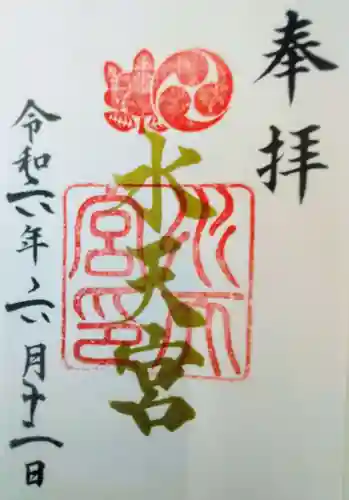 奉拝
水天宮
水天宮印
令和六年六月十二日